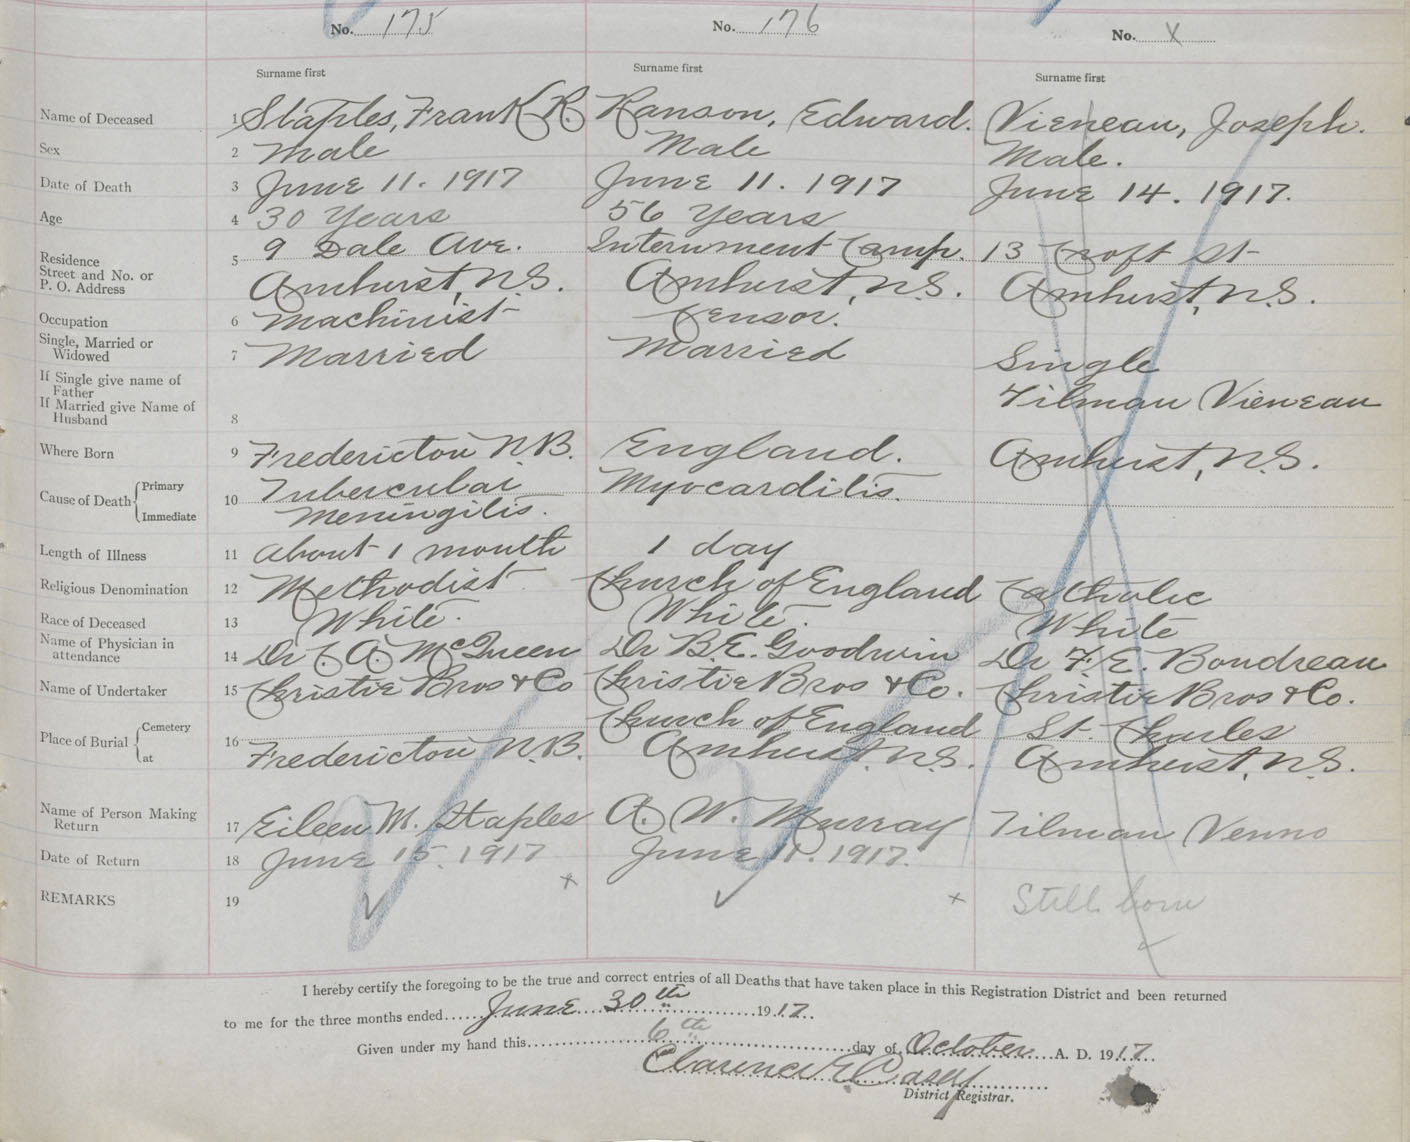 No. 175 No. 176 No. X
Surname first Surname first Surname first
Name of Deceased 1 Staples, Frank R. Ranson, Edward. Vieneau, Joseph.
Sex 2 Male Male Male.
Date of Death 3 June 11. 1917 June 11. 1917 June 14. 1917.
Age 4 30 Years 56 Years
Residence 9 Dale Ave. Internment Camp. 13 Croft St
Street and No. or 5
P. O. Address Amherst, N.S. Amherst, N.S. Amherst, N.S.
Occupation 6 Machinist Censor.
Single, Married or
Widowed 7 Married Married Single
If Single give name of
Father
If Married give Name of
Husband 8 Tilman Vieneau
Where Born 9 Fredericton N.B. England. Amherst, N.S.
Cause of Death Primary Immediate 10 Tubercular Myocarditis.
Meningitis.
Length of Illness 11 about 1 month 1 day
Religious Denomination 12 Methodist Church of England Catholic
Race of Deceased 13 White. White. White
Name of Physician in
attendance 14 Dr C. A. McQueen Dr B.E. Goodwin Dr F. E. Boudreau
Name of Undertaker 15 Christie Bros & Co Christie Bros & Co. Christie Bros & Co.
Place of Burial Cemetery 16 Church of England St. Charles
at Fredericton N.B. Amherst. N.S. Amherst, N.S.
Name of Person Making
Return 17 Eileen M. Staples A. W. Murray Tilman Venno
Date of Return 18 June 15. 1917 June 11. 1917.
REMARKS 19 Still born
I hereby certify the foregoing to be the true and correct entries of all Deaths that have taken place in this Registration District and been returned
to me for the three months ended June 30th 1917.
Given under my hand this 6th day of October A. D. 1917.
Clarence E Casey
District Registrar.